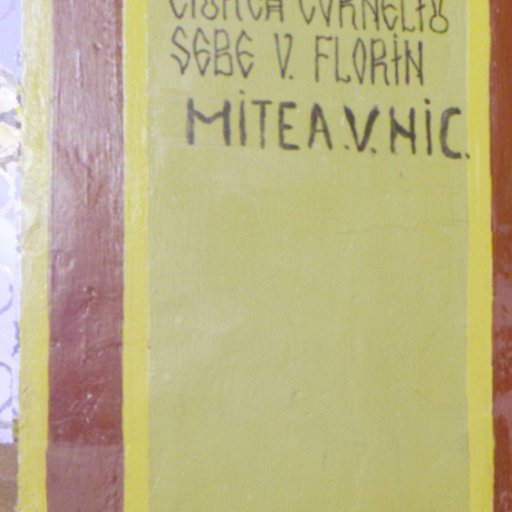 CORNELIU
SEBE V. FLORIN
MITEA.V.NIC.